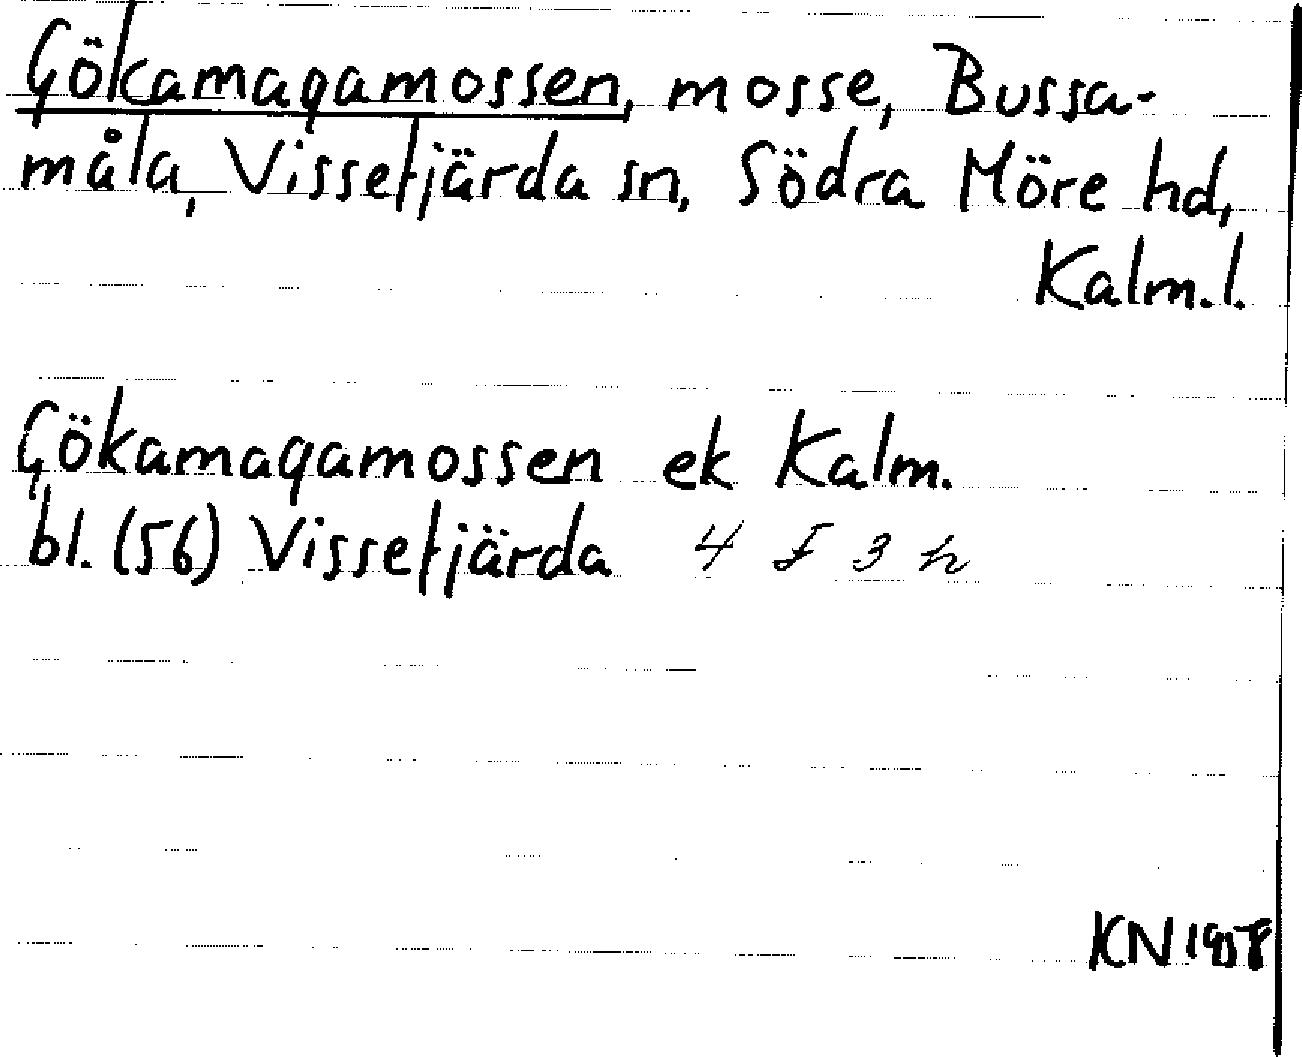 Gökamagamossen, mosse, Bussa-
måla, Vissefjärda sn, Södra Möre hd,
Kalm.l.
Gökamagamossen ek Kalm.
bl. (56) Vissefjärda 4 F 3 h
KN 1958